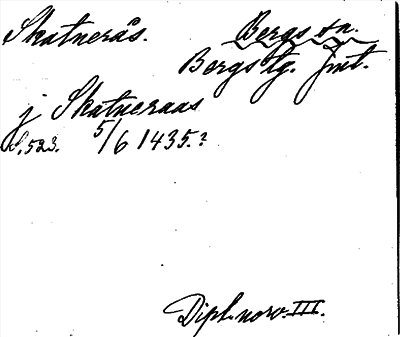 Skatnerås. Bergs sn.
Bergs tg. Jmt.
j Skatneraas
S. 523. 5/6 1435.?
Dipl. norv. III.